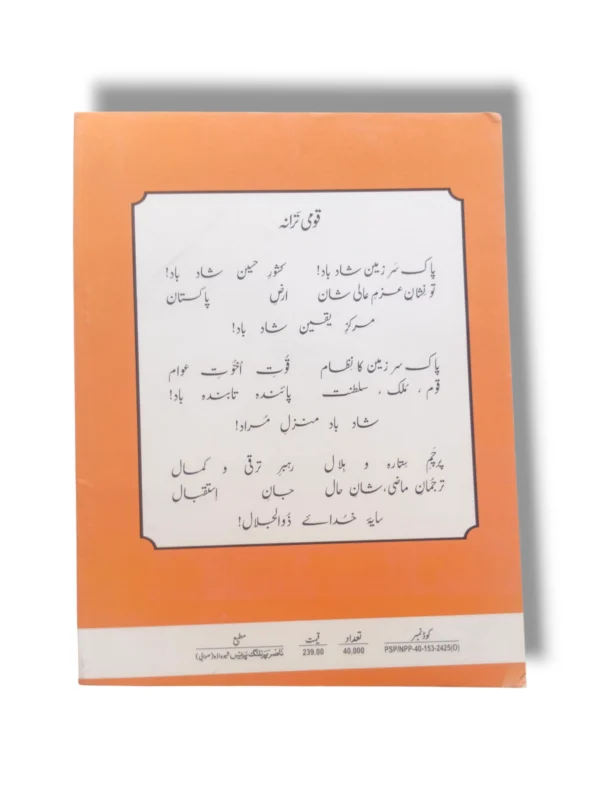 قومی ترانہ
پاک سَر زمین شاد باد! کشورِ حسین شاد باد!
تو نشانِ عزمِ عالی شان ارضِ پاکستان
مرکزِ یقین شاد باد!
پاک سرزمین کا نِظام قُوّتِ اُخُوّتِ عوام
قوم ، مُلک ، سلطنت پائندہ تابندہ باد!
شاد باد منزلِ مُراد!
پرچمِ ستارہ و ہلال رہبرِ ترقی و کمال
ترجمانِ ماضی، شانِ حال جانِ اِستقبال
سایۂ خدائے ذُوالجلال!
کوڈ نمبر تعداد قیمت مطبع
PSP/NPP-40-153-2425(O) 40,000 239.00